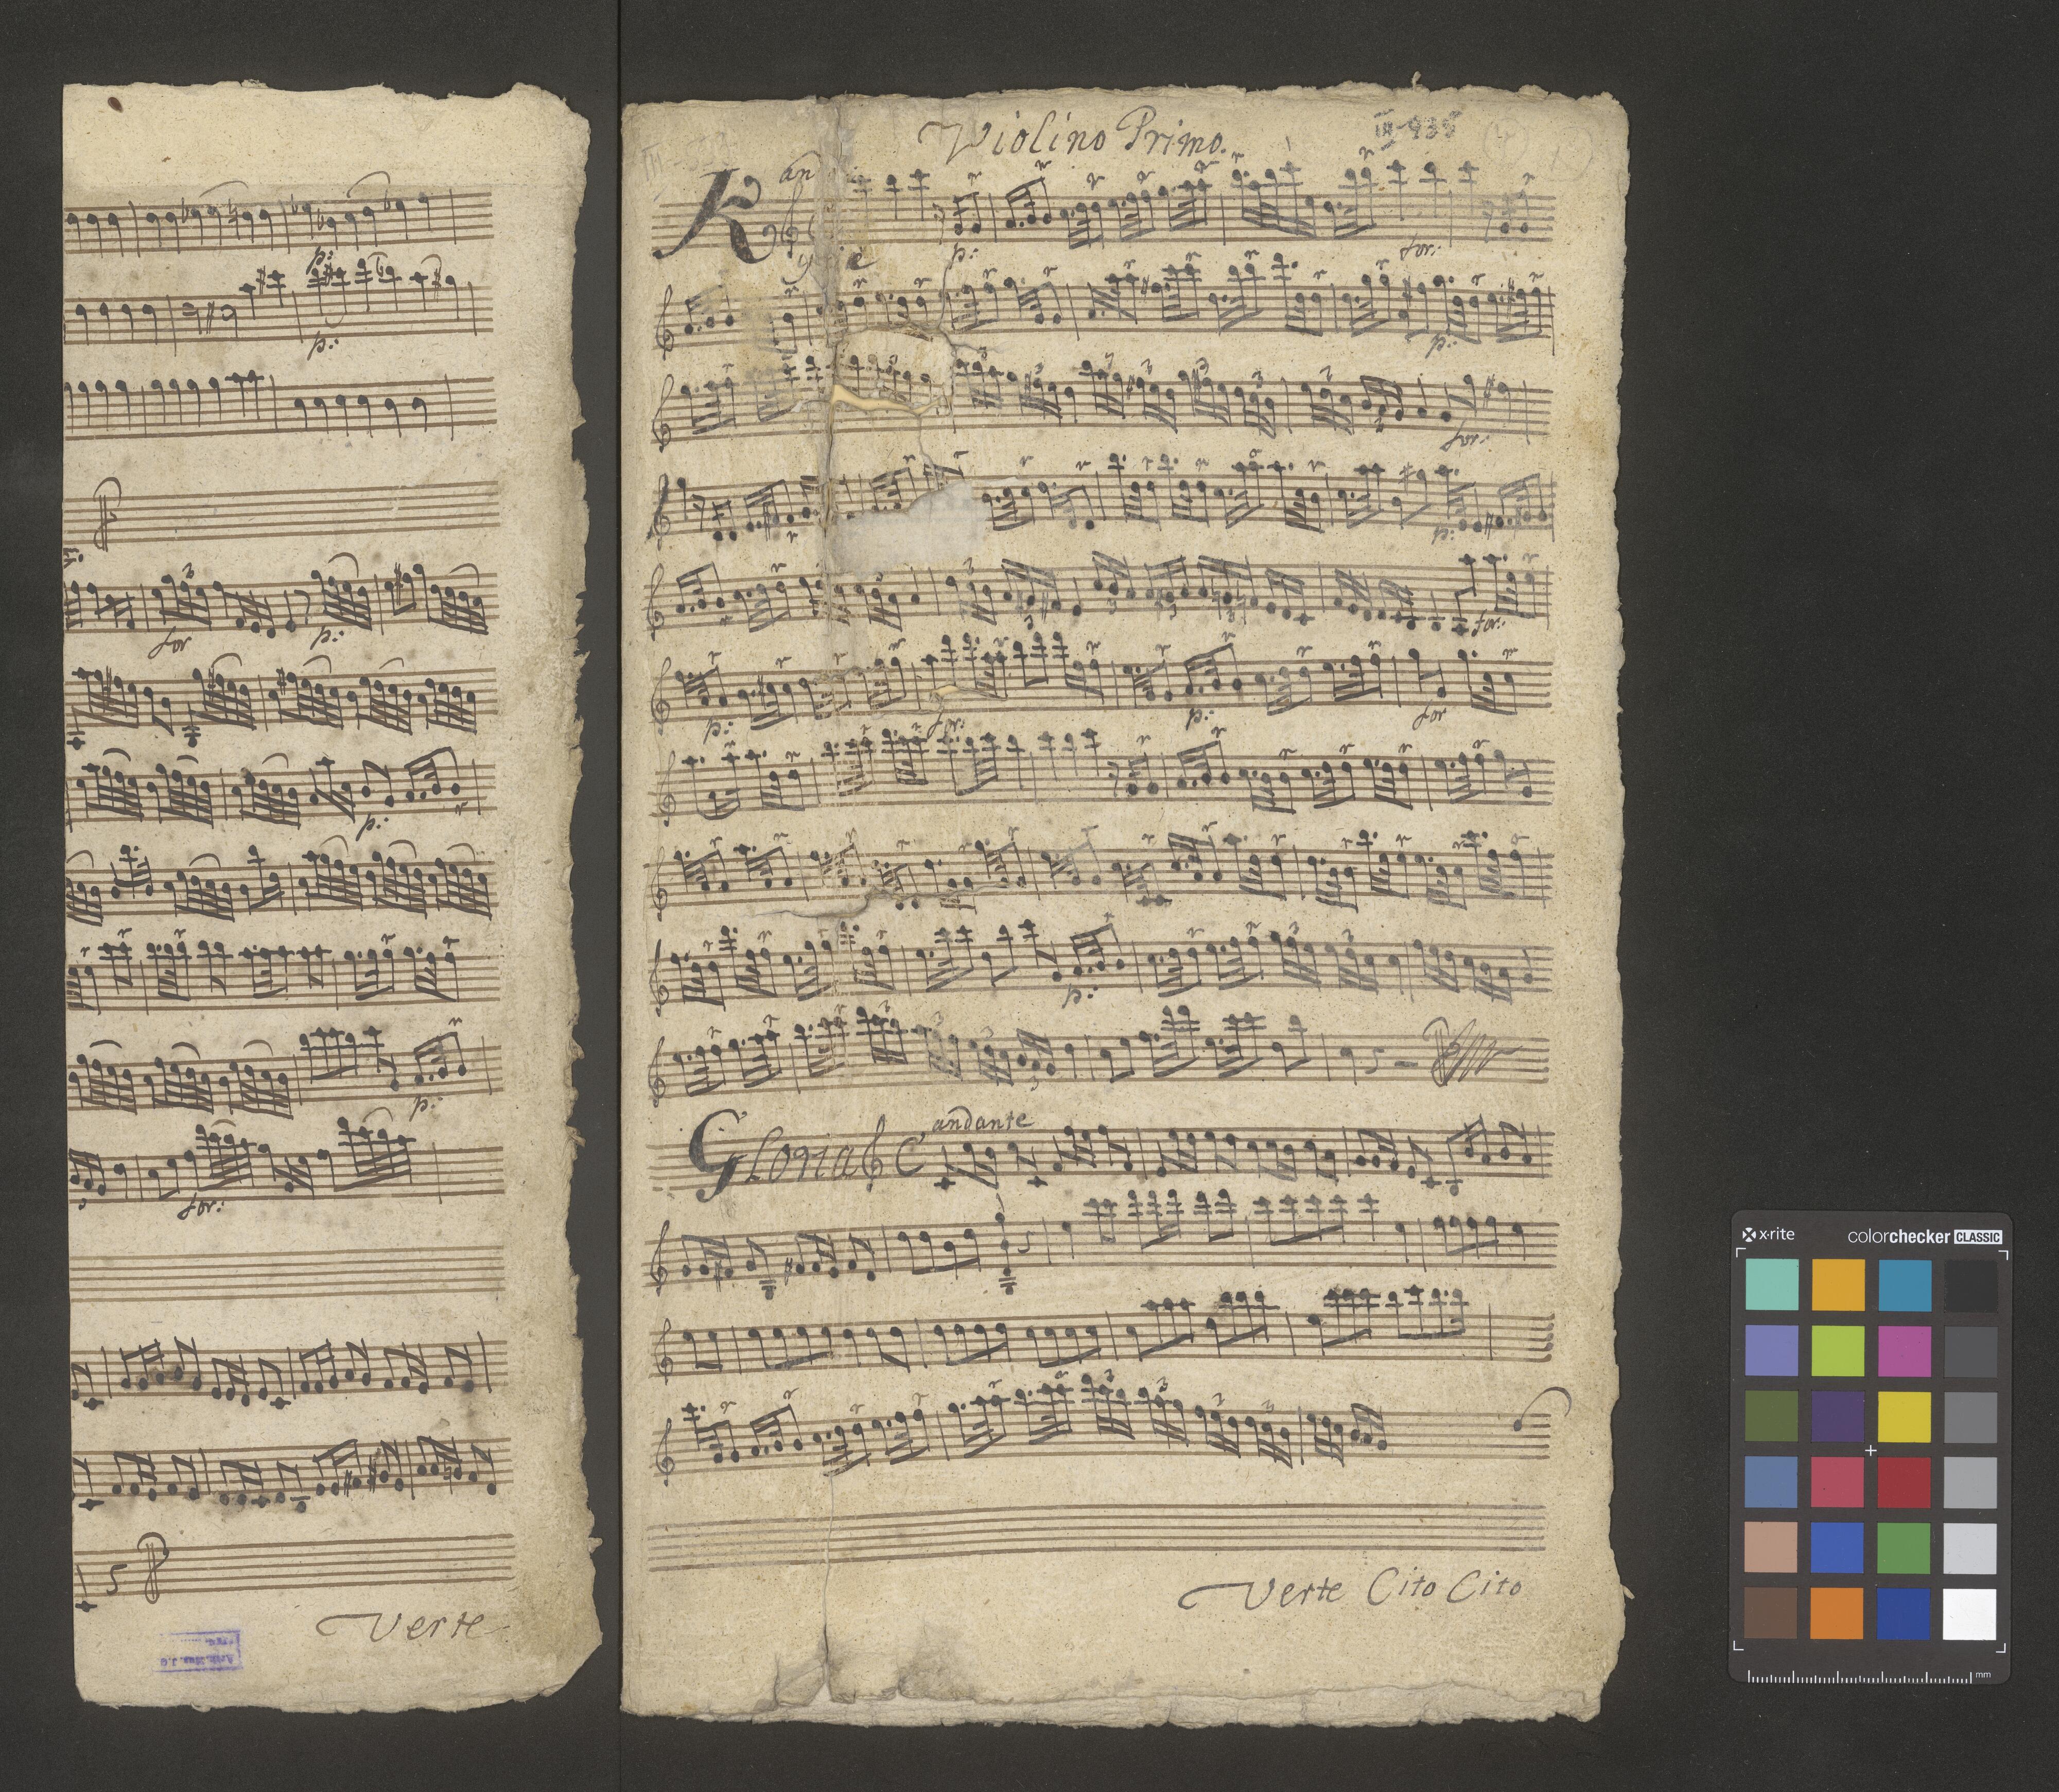 p:
p:
for
p:
p:
p:
for:
Verte
Violino Primo.
III-935
an
Kyrie
p:
for:
p:
for:
p:
for:
p:
for:
p:
for
p:
Gloria
andante
Verte Cito Cito
x·rite
colorchecker CLASSIC
mm